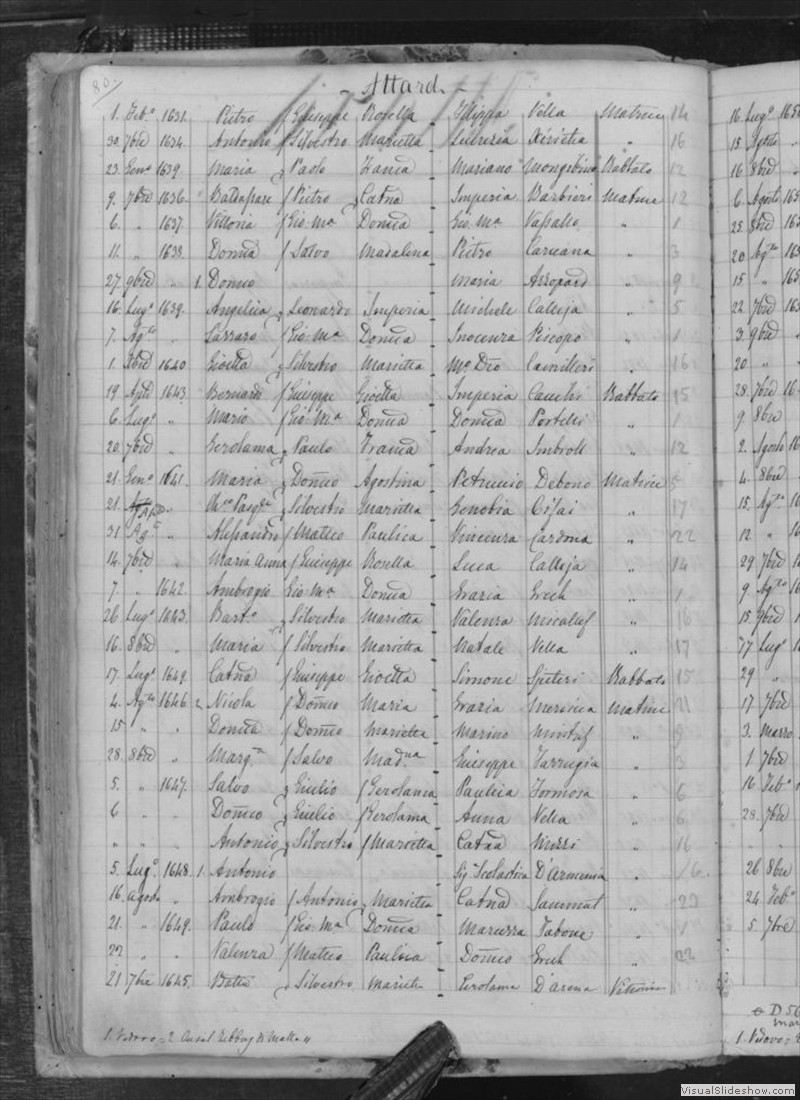 80.
- Attard -
1. Feb.o 1631. Pietro Giuseppe Rosella Filippa Vella Matrice 14
30. 7bre 1634. Antonio Silvestro Marietta Lucrezia Xirietta " 16
23. Gen.o 1639. Maria Paolo Franca Mariano Mongebino Babbato 12
9. 7bre 1636. Baldassare Pietro Catna Imperia Barbieri Matrice 12
6. " 1637. Vittoria Gio. Ma Domca Gio. Ma Vassallo " 1
11. " 1638. Domca Salvo Madalena Pietro Caruana " 3
27. 9bre " 1. Domco Maria Axopard " 9
16. Lug.o 1639. Angelica Leonardo Imperia Michele Calleja " 5
7. Ag.to " Lazzaro Gio. Ma Domca Inocenza Piscopo " 1
1. Xbre 1640 Gioetta Silvestro Marietta Ma Dio Camilleri " 16
19. Agto 1643. Bernardo Giuseppe Gioetta Imperia Cauchi Babbato 15
6. Lug.o " Mario Gio. Ma Domca Domca Portelli " 1
20. 7bre " Gerolama Paulo Franca Andrea Imbroll " 12
21. Gen.o 1641. Maria Domco Agostina Petruccio Debono Matrice 5
21. Ap.e " Silvestro Marietta Zenobia " 17
31. Ag.o " Alessandro Matteo Paulica Vincenza Cardona " 22
14. 7bre " Maria Anna Giuseppe Rosella Luca Calleja " 14
7. " 1642. Ambrogio Gio. Ma Domca Grazia Grech " 1
26. Lug.o 1643. Bart.o Silvestro Marietta Valenza Micallef " 16
16. 8bre " Maria Silvestro Marietta Natale Vella " 17
17. Lug.o 1649. Catna Giuseppe Gioetta Simone Spiteri Babbato 15
4. Ag.to 1646 2 Nicola Domco Maria Grazia Mersieca Matrice 21
15 " " Domca Domco Marietta Marino Mintuf " 9
28. 8bre " Marg.ta Salvo Mad.na Giuseppe Farrugia " 3
5. " 1647. Salvo Giulio Gerolama Paulica Formosa " 6
6 " " Domco Giulio Gerolama Anna Vella " 6
" " " Antonio Silvestro Marietta Catna Muzzi " 16
5. Lug.o 1648. 1. Antonio Sig. Scolastica D'Armenia " 16
16. agosto " Ambrogio Antonio Marietta Catna Sammut " 22
21. " 1649. Paulo Gio. Ma Domca Marcuzza Tabone " 1
22 " " Valenza Matteo Paulica Domco Grech " 22
21 7bre 1645. Batta Silvestro Marietta Gerolama D'arena Vittoria
1. Vedovo = 2. Casal Zebbug di Malta "
16 Lug.o 165
15 Agosto "
16 8bre "
6. Agosto 165
25. 8bre 165
20 Ag.to 165
15 " 165
22 7bre 165
3. 9bre "
20 " "
28. 7bre 16
9. 8bre
2. Agosto 16
4. 8bre
15. Ag.to 1
12 " 1
29. 7bre 1
9. Ag.to 1
15. 9bre 1
77 Lug.o 1
29 "
17 7bre
3. Marzo
1. 7bre
16 Feb.o
28. 7bre
26 8bre
24 Feb.o
5 7bre
1. Vedovo = 2
VisualSlideshow.com